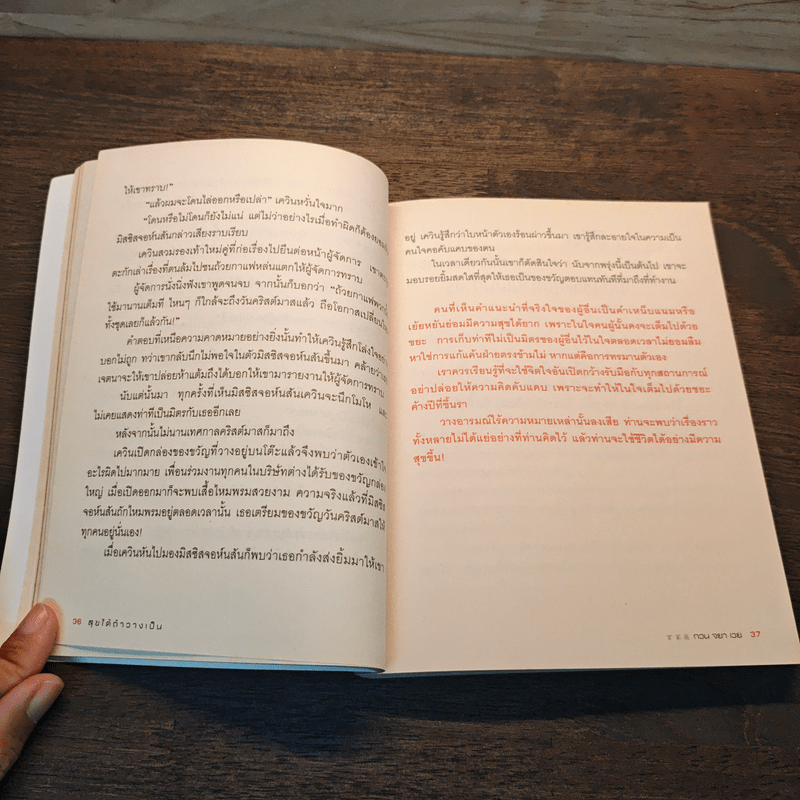 ให้เขาทราบ!"
"แล้วผมจะโดนไล่ออกหรือเปล่า" เควินหวั่นใจมาก
"โดนหรือไม่โดนก็ยังไม่แน่ แต่ไม่ว่าอย่างไรเมื่อทำผิดก็ต้องยอมรับ
มิสซิสจอห์นสันกล่าวเสียงราบเรียบ
เควินสวมรองเท้าใหม่คู่ที่ก่อเรื่องไปยืนต่อหน้าผู้จัดการ เขา
ตะกักเล่าเรื่องที่ตนล้มไปชนถ้วยกาแฟหล่นแตกให้ผู้จัดการทราบ
ผู้จัดการนั่งนิ่งฟังเขาพูดจนจบ จากนั้นก็บอกว่า "ถ้วยกาแฟพวก
ใช้มานานเต็มที ไหนๆ ก็ใกล้จะถึงวันคริสต์มาสแล้ว ถือโอกาสเปลี่ยน
ทั้งชุดเลยก็แล้วกัน!"
คำตอบที่เหนือความคาดหมายอย่างยิ่งนั้นทำให้เควินรู้สึกโล่งใจ
บอกไม่ถูก ทว่าเขากลับนึกไม่พอใจในตัวมิสซิสจอห์นสันขึ้นมา คล้ายว่า
เจตนาจะให้เขาปล่อยห้าแต้มถึงได้บอกให้เขามารายงานให้ผู้จัดการทราบ
นับแต่นั้นมา ทุกครั้งที่เห็นมิสซิสจอห์นสันเควินจะนึกโมโห และ
ไม่เคยแสดงท่าทีเป็นมิตรกับเธออีกเลย
หลังจากนั้นไม่นานเทศกาลคริสต์มาสก็มาถึง
เควินเปิดกล่องของขวัญที่วางอยู่บนโต๊ะแล้วจึงพบว่าตัวเองเข้าใจ
อะไรผิดไปมากมาย เพื่อนร่วมงานทุกคนในบริษัทต่างได้รับของขวัญกล่อง
ใหญ่ เมื่อเปิดออกมาก็จะพบเสื้อไหมพรมสวยงาม ความจริงแล้วที่มิสซิส
จอห์นสันถักไหมพรมอยู่ตลอดเวลานั้น เธอเตรียมของขวัญวันคริสต์มาสให้
ทุกคนอยู่นั่นเอง!
เมื่อเควินหันไปมองมิสซิสจอห์นสันก็พบว่าเธอกำลังส่งยิ้มมาให้เขา
36 สุขได้ถ้าวางเป็น
อยู่ เควินรู้สึกว่าใบหน้าตัวเองร้อนผ่าวขึ้นมา เขารู้สึกละอายใจในความเป็น
คนใจคอคับแคบของตน
ในเวลาเดียวกันนั้นเขาก็ตัดสินใจว่า นับจากพรุ่งนี้เป็นต้นไป เขาจะ
มอบรอยยิ้มสดใสที่สุดให้เธอเป็นของขวัญตอบแทนทันทีที่มาถึงที่ทำงาน
คนที่เห็นคำแนะนำที่จริงใจของผู้อื่นเป็นคำเหน็บแนมหรือ
เย้ยหยันย่อมมีความสุขได้ยาก เพราะในใจคนผู้นั้นคงจะเต็มไปด้วย
ขยะ การเก็บท่าทีไม่เป็นมิตรของผู้อื่นไว้ในใจตลอดเวลาไม่ยอมลืม
หาใช่การแก้แค้นฝ่ายตรงข้ามไม่ หากแต่คือการทรมานตัวเอง
เราควรเรียนรู้ที่จะใช้จิตใจอันเปิดกว้างรับมือกับทุกสถานการณ์
อย่าปล่อยให้ความคิดคับแคบ เพราะจะทำให้ในใจเต็มไปด้วยขยะ
ค้างปีที่ขึ้นรา
วางอารมณ์ไร้ความหมายเหล่านั้นลงเสีย ท่านจะพบว่าเรื่องราว
ทั้งหลายไม่ได้แย่อย่างที่ท่านคิดไว้ แล้วท่านจะใช้ชีวิตได้อย่างมีความ
สุขขึ้น!
กวน จยา เวย 37